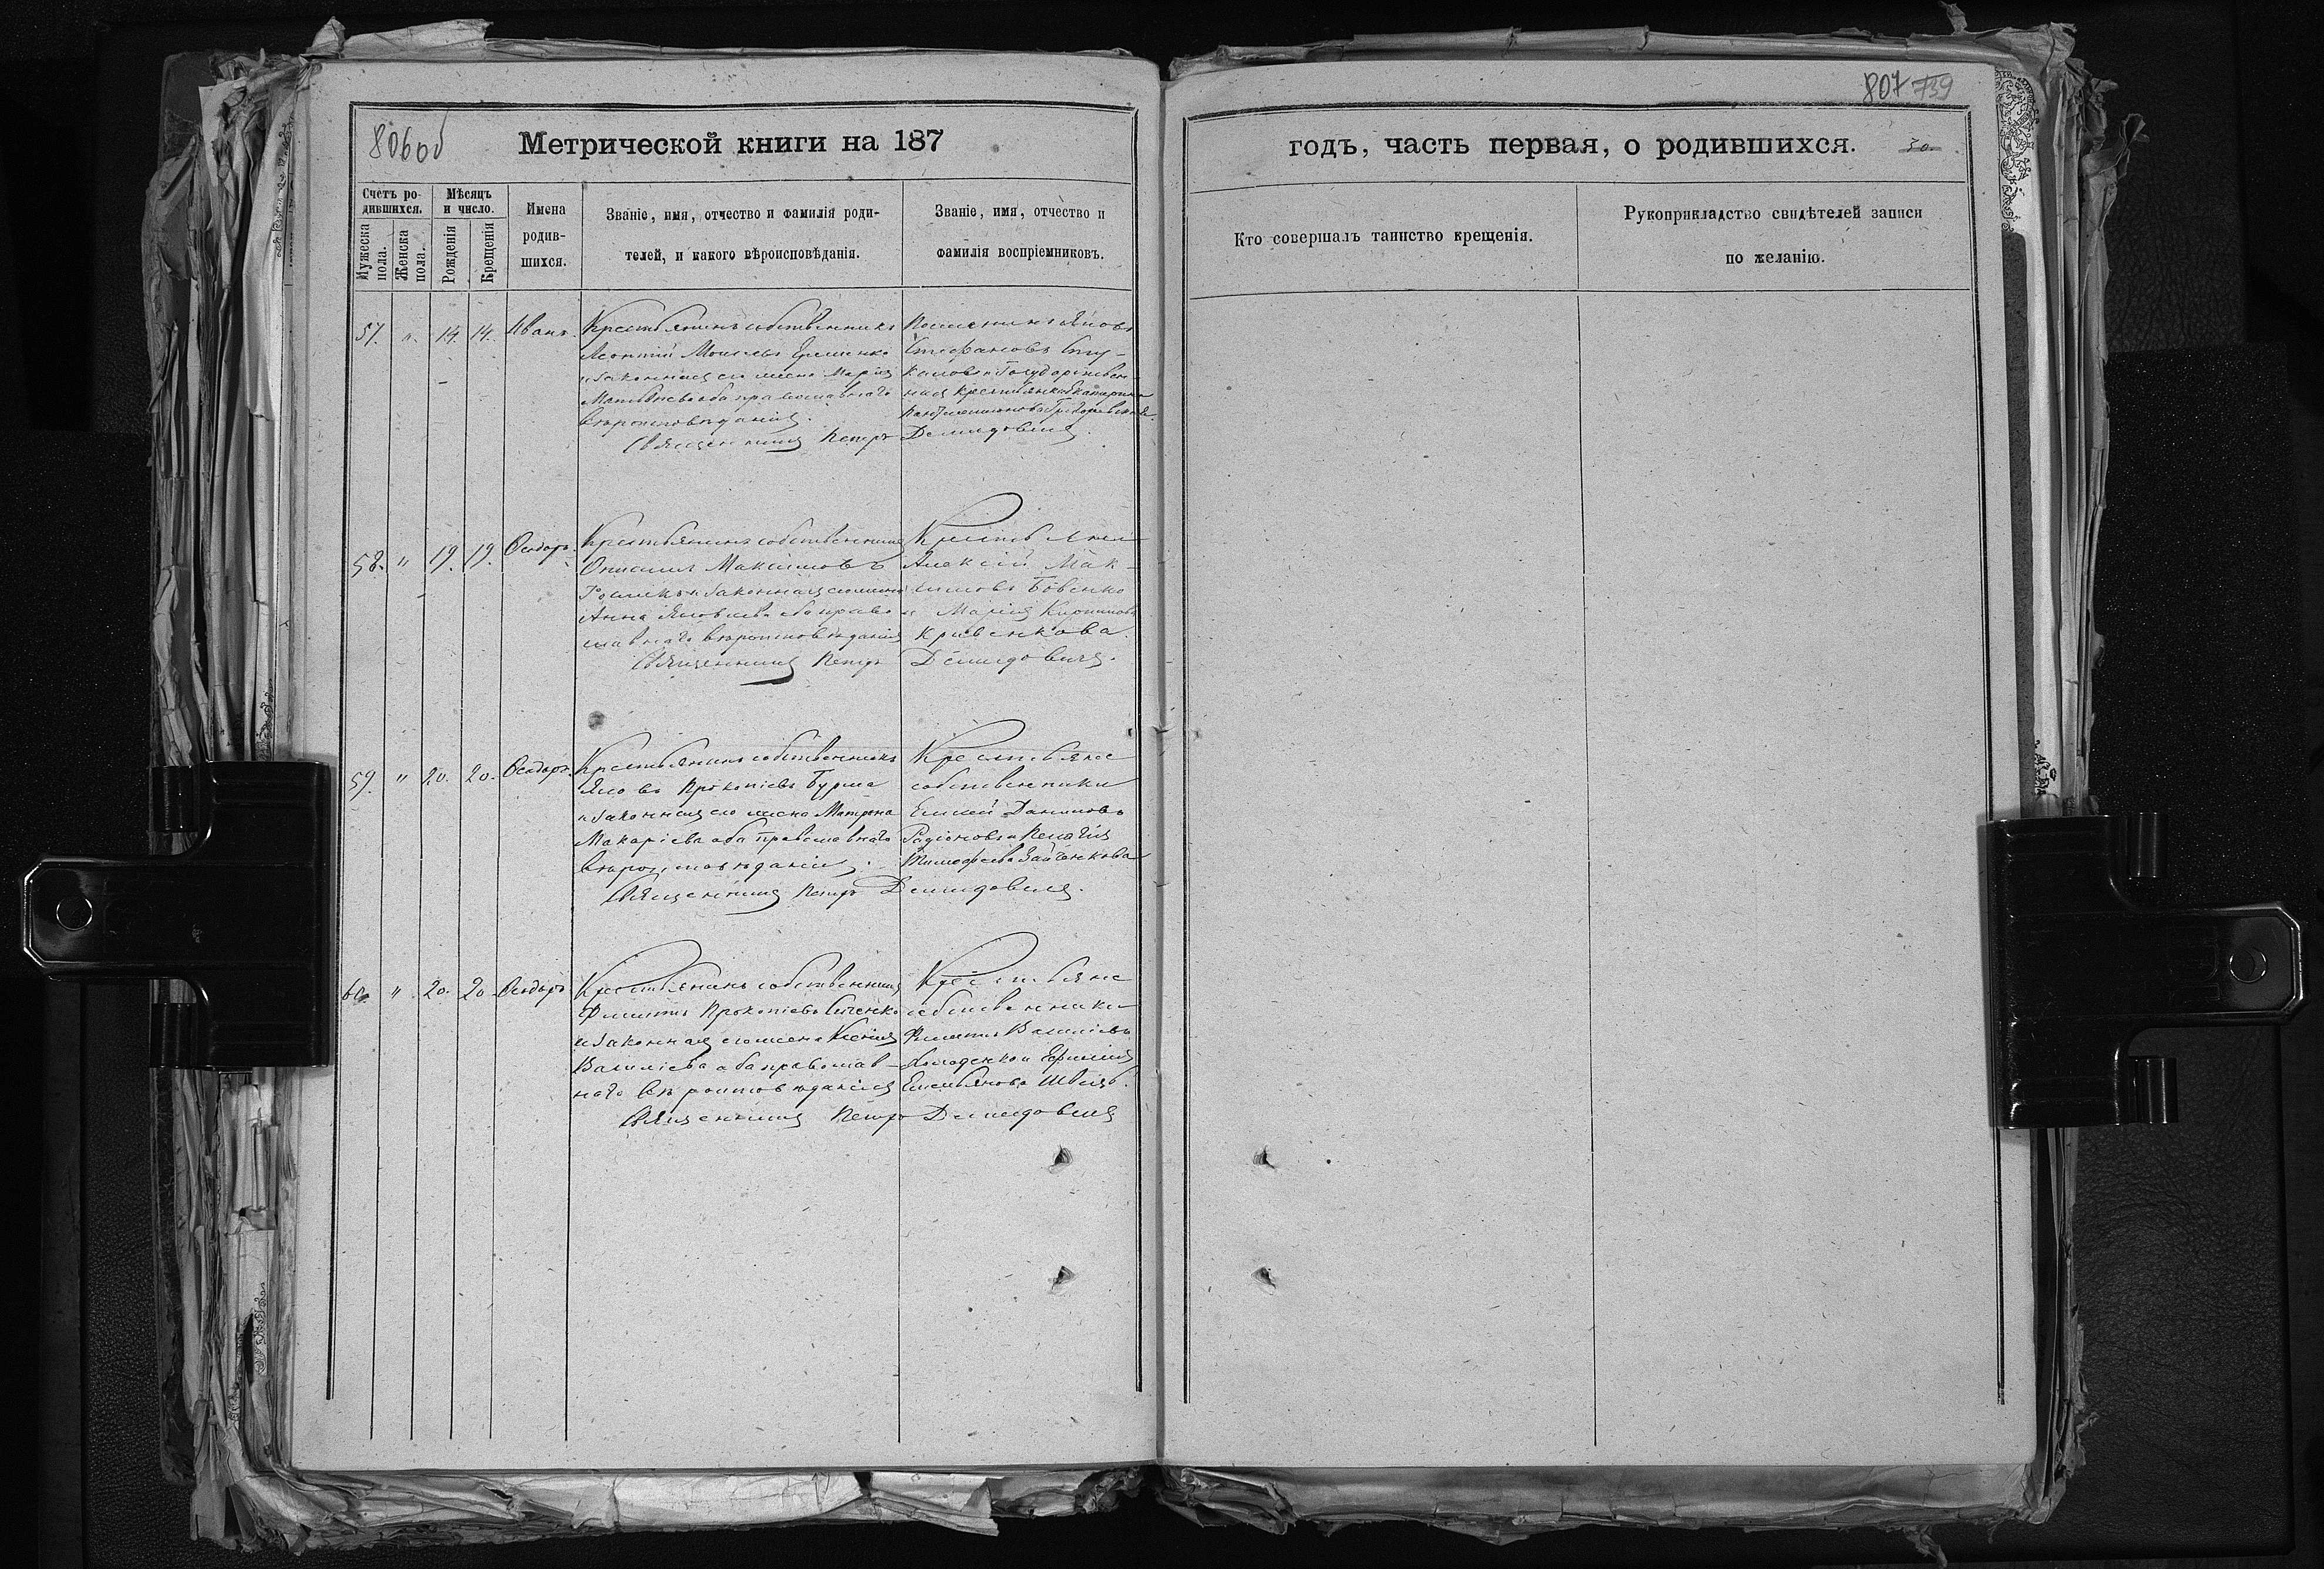 806об
Метрической книги на 187
Счетъ ро-
дившихся.
Мѣсяцъ
и число.
Мужеска
пола.
Женска
пола.
Рожденія
Крещенія
Имена
родив-
шихся.
Званіе, имя, отчество и фамилія роди-
телей, и какого вѣроисповѣданія.
Званіе, имя, отчество и
фамилія воспріемниковъ.
57. " 14. 14. Иванъ
Крестьянинъ собственникъ
Леонтій Моисеевъ
и законная его жена Марія
Матвѣева оба православнаго
вѣроисповѣданія.
Стефановъ
Священникъ Петръ Демидовичъ
58. " 19. 19. Ѳеодоръ.
Крестьянинъ собственникъ
Онисимъ Максимовъ
и законная его жена
Анна Яковлева оба право
славнаго вѣроисповѣданія
Крестьяне
Алексій Мак-
симовъ Бовенко
и Марія
Кривенкова.
Священникъ Петръ Демидовичъ.
59. " 20. 20. Ѳеодоръ.
Крестьянинъ собственникъ
Яковъ Прокопіевъ Бурма
и законная его жена Матрона
Макаріева оба православнаго
вѣроисповѣданія.
Крестьяне
собственники
Елисей Даниловъ
Радіоновъ и Пелагія
Тимофеева Зайченкова
Священникъ Петръ Демидовичъ.
60. " 20. 20. Ѳеодоръ
Крестьянинъ собственникъ
Филиппъ Прокопіевъ
и законная его жена Ксенія
Василіева оба православ-
наго вѣроисповѣданія
Крестьяне
собственники
Филиппъ Василіевъ
и Ефимія
Емельянова
Священникъ Петръ Демидовичъ
807 739
годъ, часть первая, о родившихся. 30.
Кто совершалъ таинство крещенія.
Рукоприкладство свидѣтелей записи
по желанію.